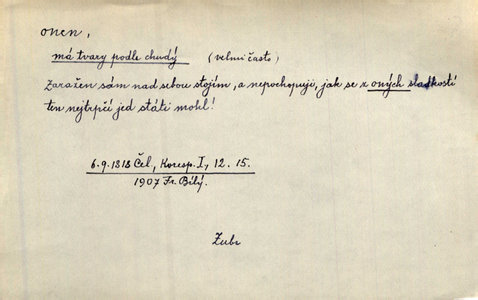 onen,
má tvary podle chudý (velmi často)
Zaražen sám nad sebou stojím, a nepochopuji, jak se z oných sladkostí
ten nejtrpčí jed státi mohl!
6.9.1818 Čel., Koresp. I, 12. 15.
1907 Fr. Bílý.
Zubr